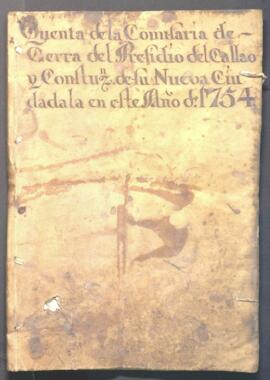 Quenta de la Comisaria de
Gerra del Presidio del Callao
y Constuz.n de su Nueva Ciu
dadala en este Año d: 1754